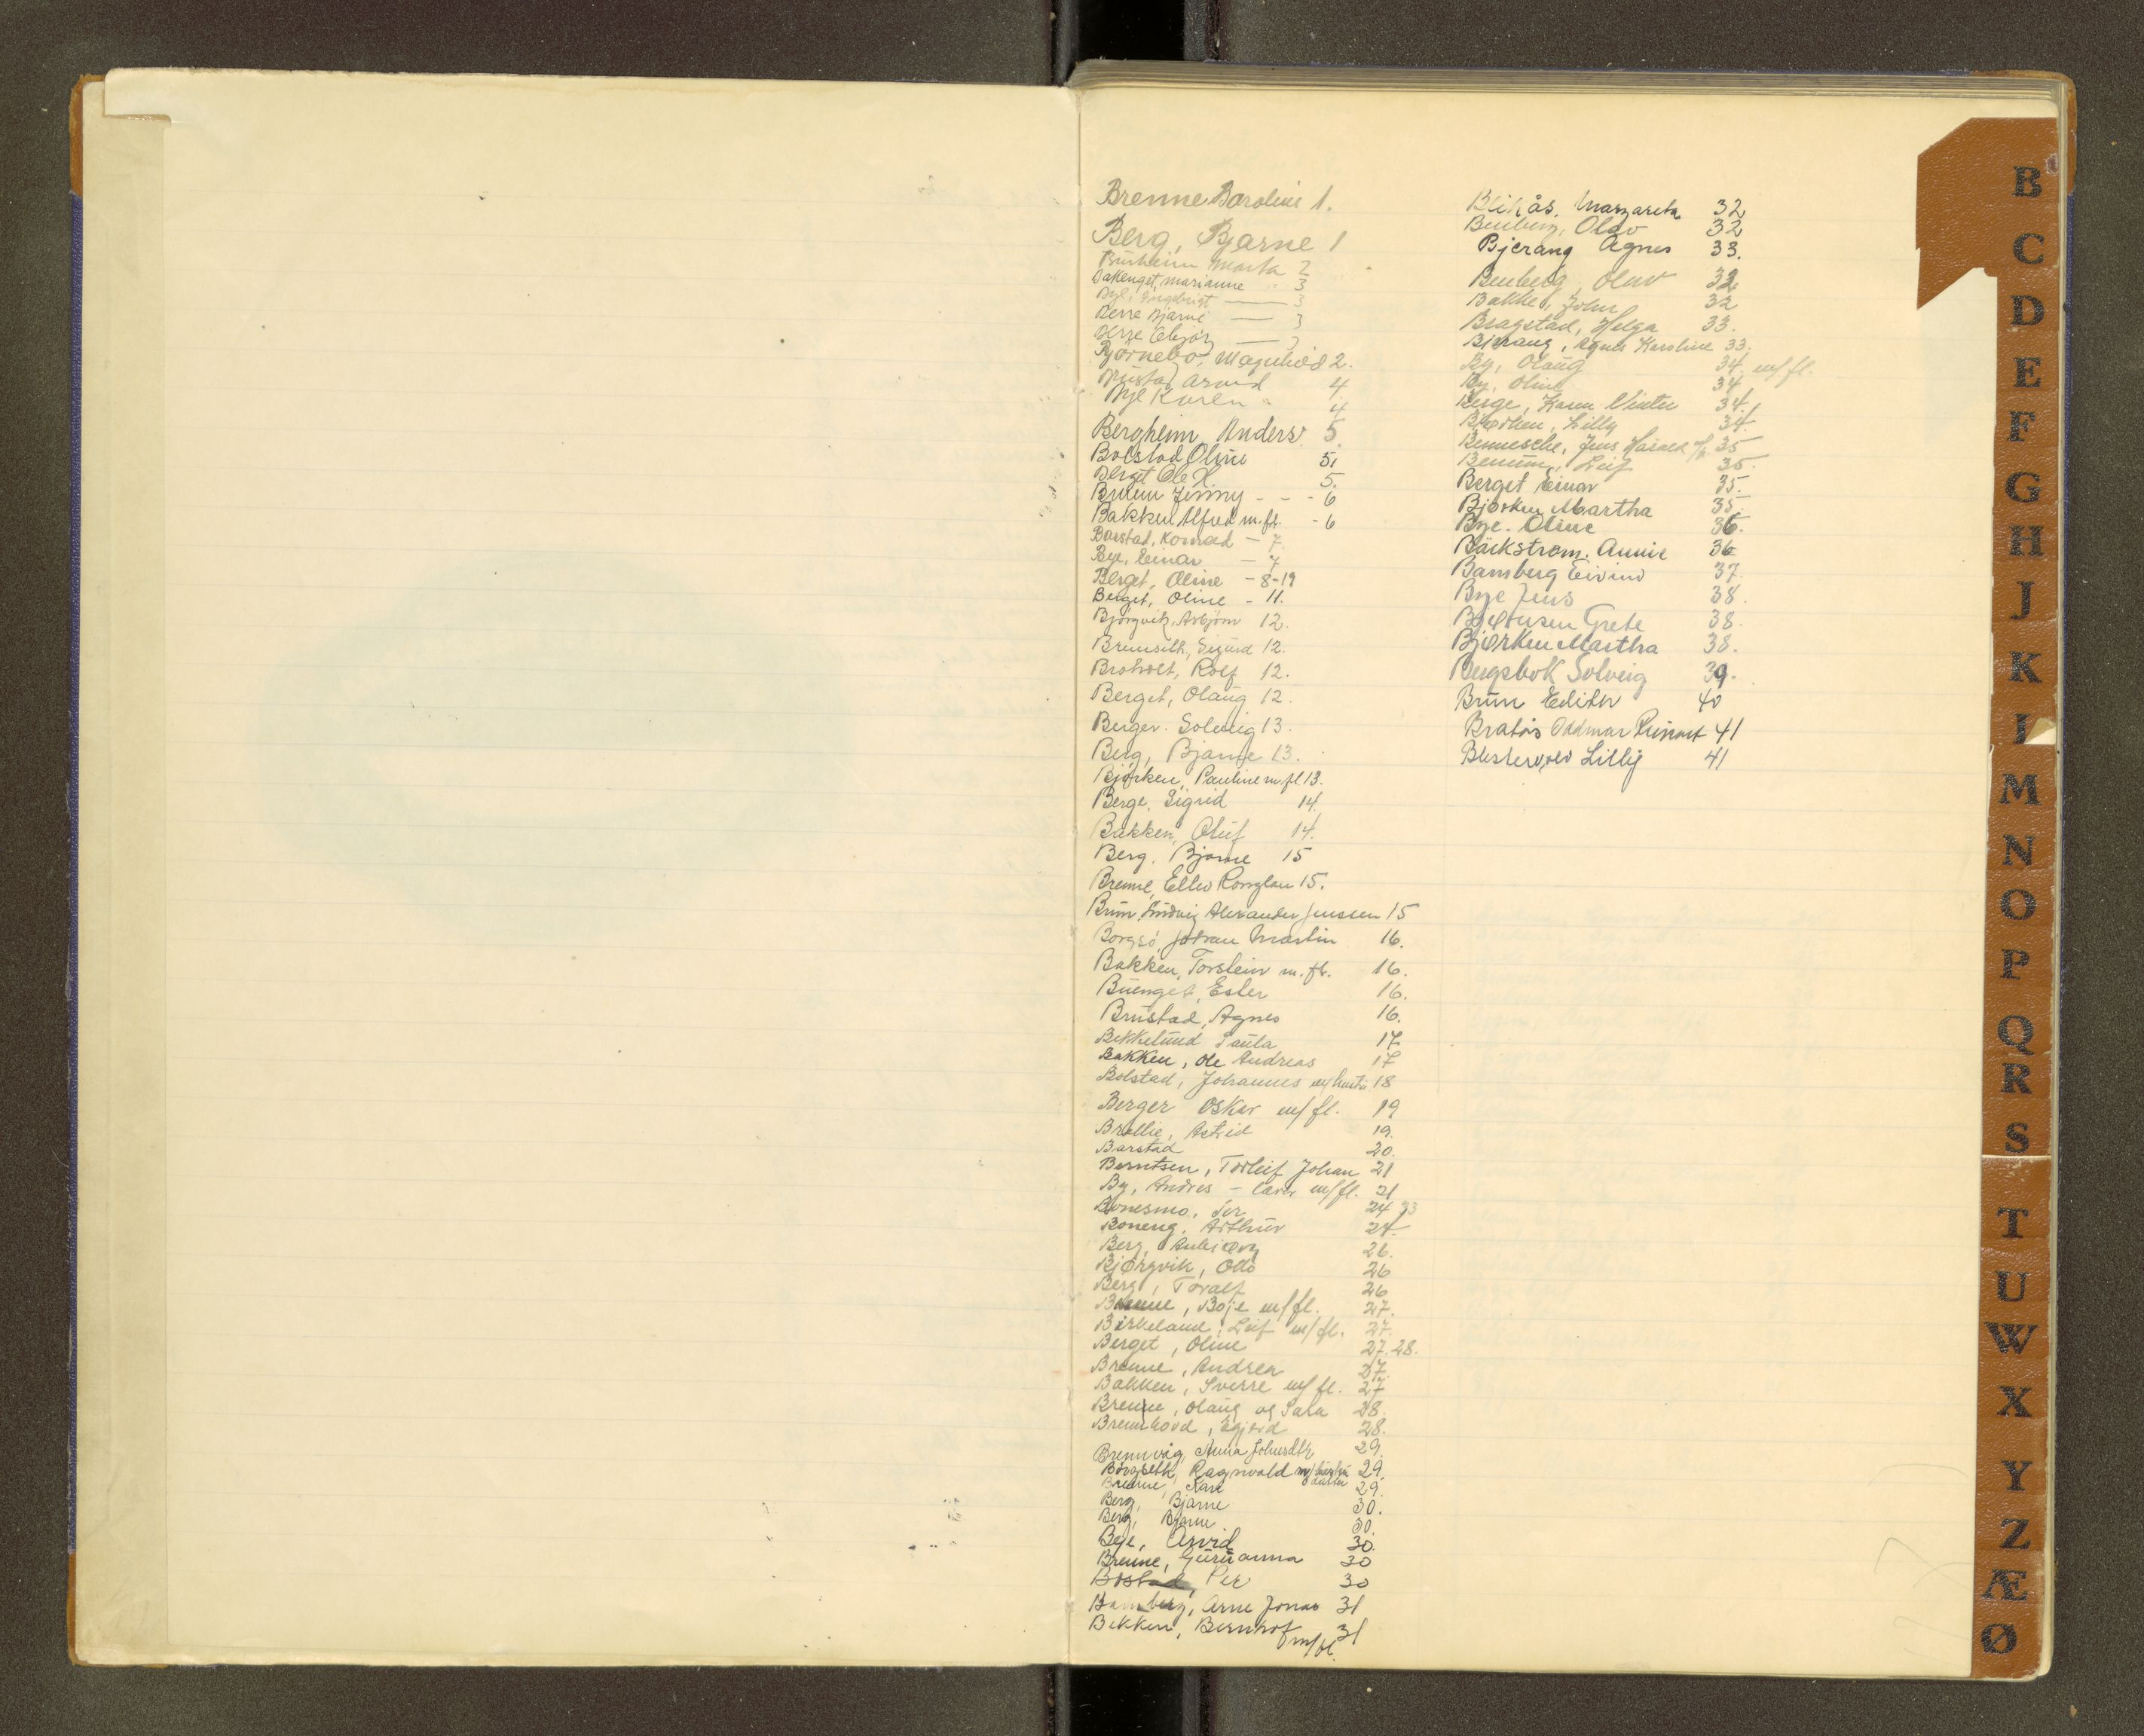 Brenne Baroline 1.
Berg, Bjarne 1
Marta 2
Bakenget, Marianne 3
Bye, Ingebrigt — 3
Berre Bjarne — 3
— 3
Bjørnebo, Magnhild 2.
Brustad Arvid 4
Bye Karen " 4
Bergheim, Anders 5.
Bolstad Oline 5,
Berget Ole K. 5.
Jenny - - - 6
Bakken Alfred m.fl. - 6
Barstad, Konrad — 7.
Bye, Einar — 7
Berget, Oline - 8-19
Berget, Oline - 11.
Bjørgvik, Asbjørn 12.
Sigurd 12.
Broholt, Rolf 12.
Berget, Olaug 12.
Berger. Solveig 13.
Berg, Bjarne 13.
Bjørken, Pauline m.fl 13.
Berge, Sigrid 14.
Bakken, Oluf 14.
Berg. Bjarne 15
Brenne, 15.
Brun, Ludvig Alexander Jenssen 15
Borgsø, Johan Martin 16.
Bakken, Torstein m.fl. 16.
Buenget, Ester 16.
Brustad, Agnes 16.
Bekkelund 17
Bakken, Ole Andreas 17
Bolstad, Johannes m/hustru 18
Berger Oskar m/fl. 19
Astrid 19.
Barstad 20.
Berntsen, Torleif Johan 21
By, Andres - m/fl. 21
Bonesmo, Per 24 23
Boneng, Arthur 24
Berg, 26.
Bjørgvik, Otto 26
Berg, Toralf 26
Brenne, Boje m/fl. 27.
Birkeland, Leif m/fl. 27.
Berget, Oline 27. 28.
Brenne, Andrea 27.
Bakken, Sverre m/fl. 27
Brenne, Olaug og Sara 28.
Brennhovd, 28.
Brennvåg, Anna Johnsdtr 29.
Borgseth, Ragnvald m/hustru 29.
Brenne, Kåre 29.
Berg, Bjarne 30.
Berg, Bjarne 30.
Bye, Arvid 30.
Brenne, Guruanna 30
Bostad, Per 30
Bamberg, Arne Jonas 31
Bekken, Bernhof m/fl. 31
Blikås, Margareta 32
Benberg, Olav 32
Bjerang Agnes 33.
Benberg, Olav 32
Bakken, John 32
Bragstad, Helga 33.
Bjerang, Agnes Karoline 33.
By, Olaug 34. m/fl.
By, Oline 34
Berge, Karen Vinter 34.
Lilly 34.
Jens Harald m/fl 35
Benum, Leif 35.
Berget Einar 35.
Bjørken Martha 35
Bye. Oline 36.
Bäckstrøm. Annie 36
Bamberg Eivind 37.
Bye Jens 38.
Grete 38.
Bjørken Martha 38.
Bergsbok Solveig 39.
Brun Edith 40
Bratås Oddmar 41
Lilly 41
B
C
D
E
F
G
H
J
K
I
M
N
O
P
Q
R
S
T
U
W
X
Y
Z
Æ
Ø